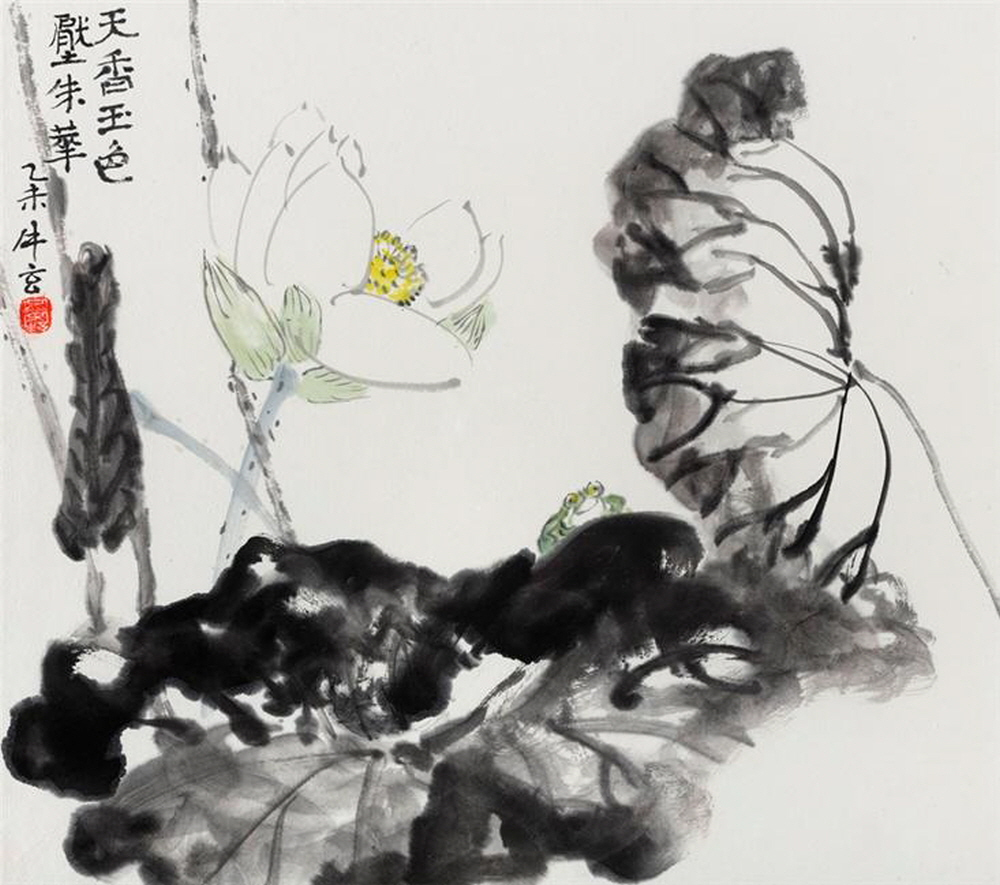 天香玉色
壓朱華
乙未牛玄